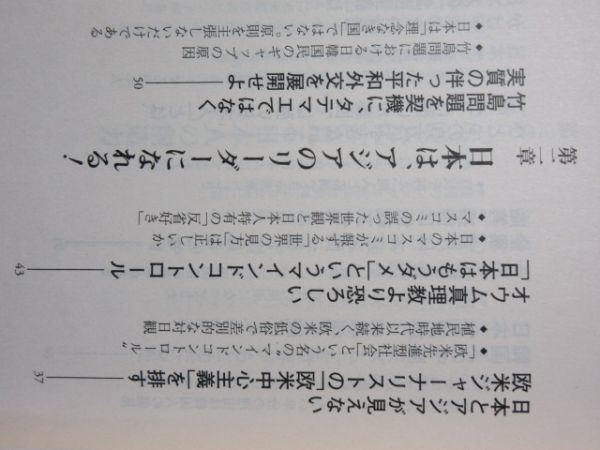 日本とアジアが見えない
欧米ジャーナリストの「欧米中心主義」を排す ―― 37
◆「欧米先進型社会」という名の〝マインドコントロール〟
◆植民地時代以来続く、欧米の低俗で差別的な対日観
オウム真理教より恐ろしい
「日本はもうダメ」というマインドコントロール ―― 43
◆日本のマスコミが報ずる「世界の見方」は正しいか
◆マスコミの誤った世界観と日本人特有の「反省好き」
第二章 日本は、アジアのリーダーになれる!
竹島問題を契機に、タテマエではなく
実質の伴った平和外交を展開せよ ―― 50
◆竹島問題における日韓国民のギャップの原因
◆日本は「理念なき国」ではない。原則を主張しないだけである